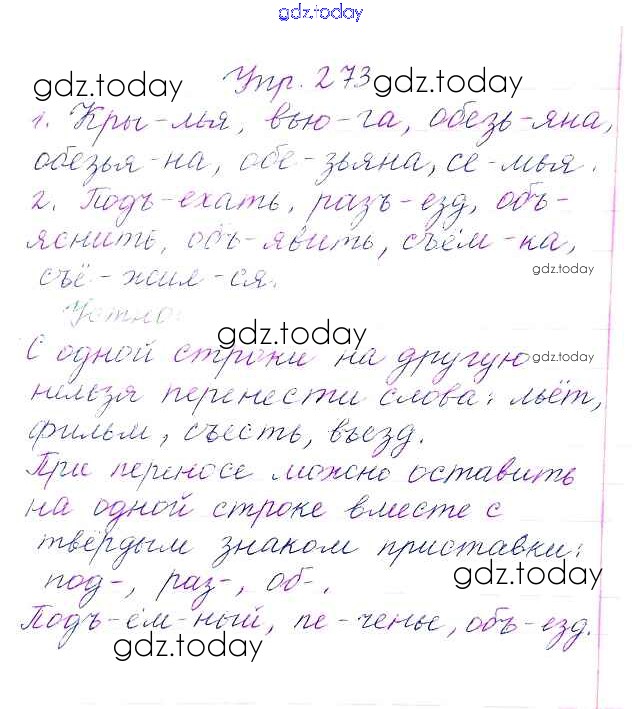 gdz.today
gdz.today Упр. 273 gdz.today
1. Кры-лья, вью-га, обезь-яна,
обезья-на, обе-зьяна, се-мья.
2. Подъ-ехать, разъ-езд, объ-
яснить, объ-явить, съём-ка,
съё-жил-ся. gdz.today
Устно:
gdz.today
С одной строки на другую gdz.today
нельзя перенести слова: льёт,
фильм, съесть, въезд.
При переносе можно оставить
на одной строке вместе с
твёрдым знаком приставки:
под-, раз-, об-. gdz.today
Подъ-ём-ный, пе-ченье, объ-езд.
gdz.today